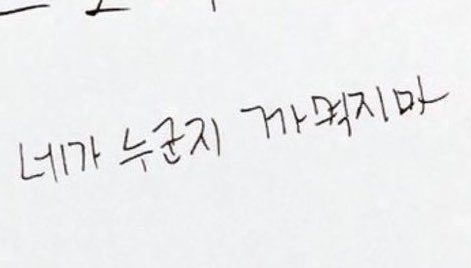 네가 누군지 까먹지마